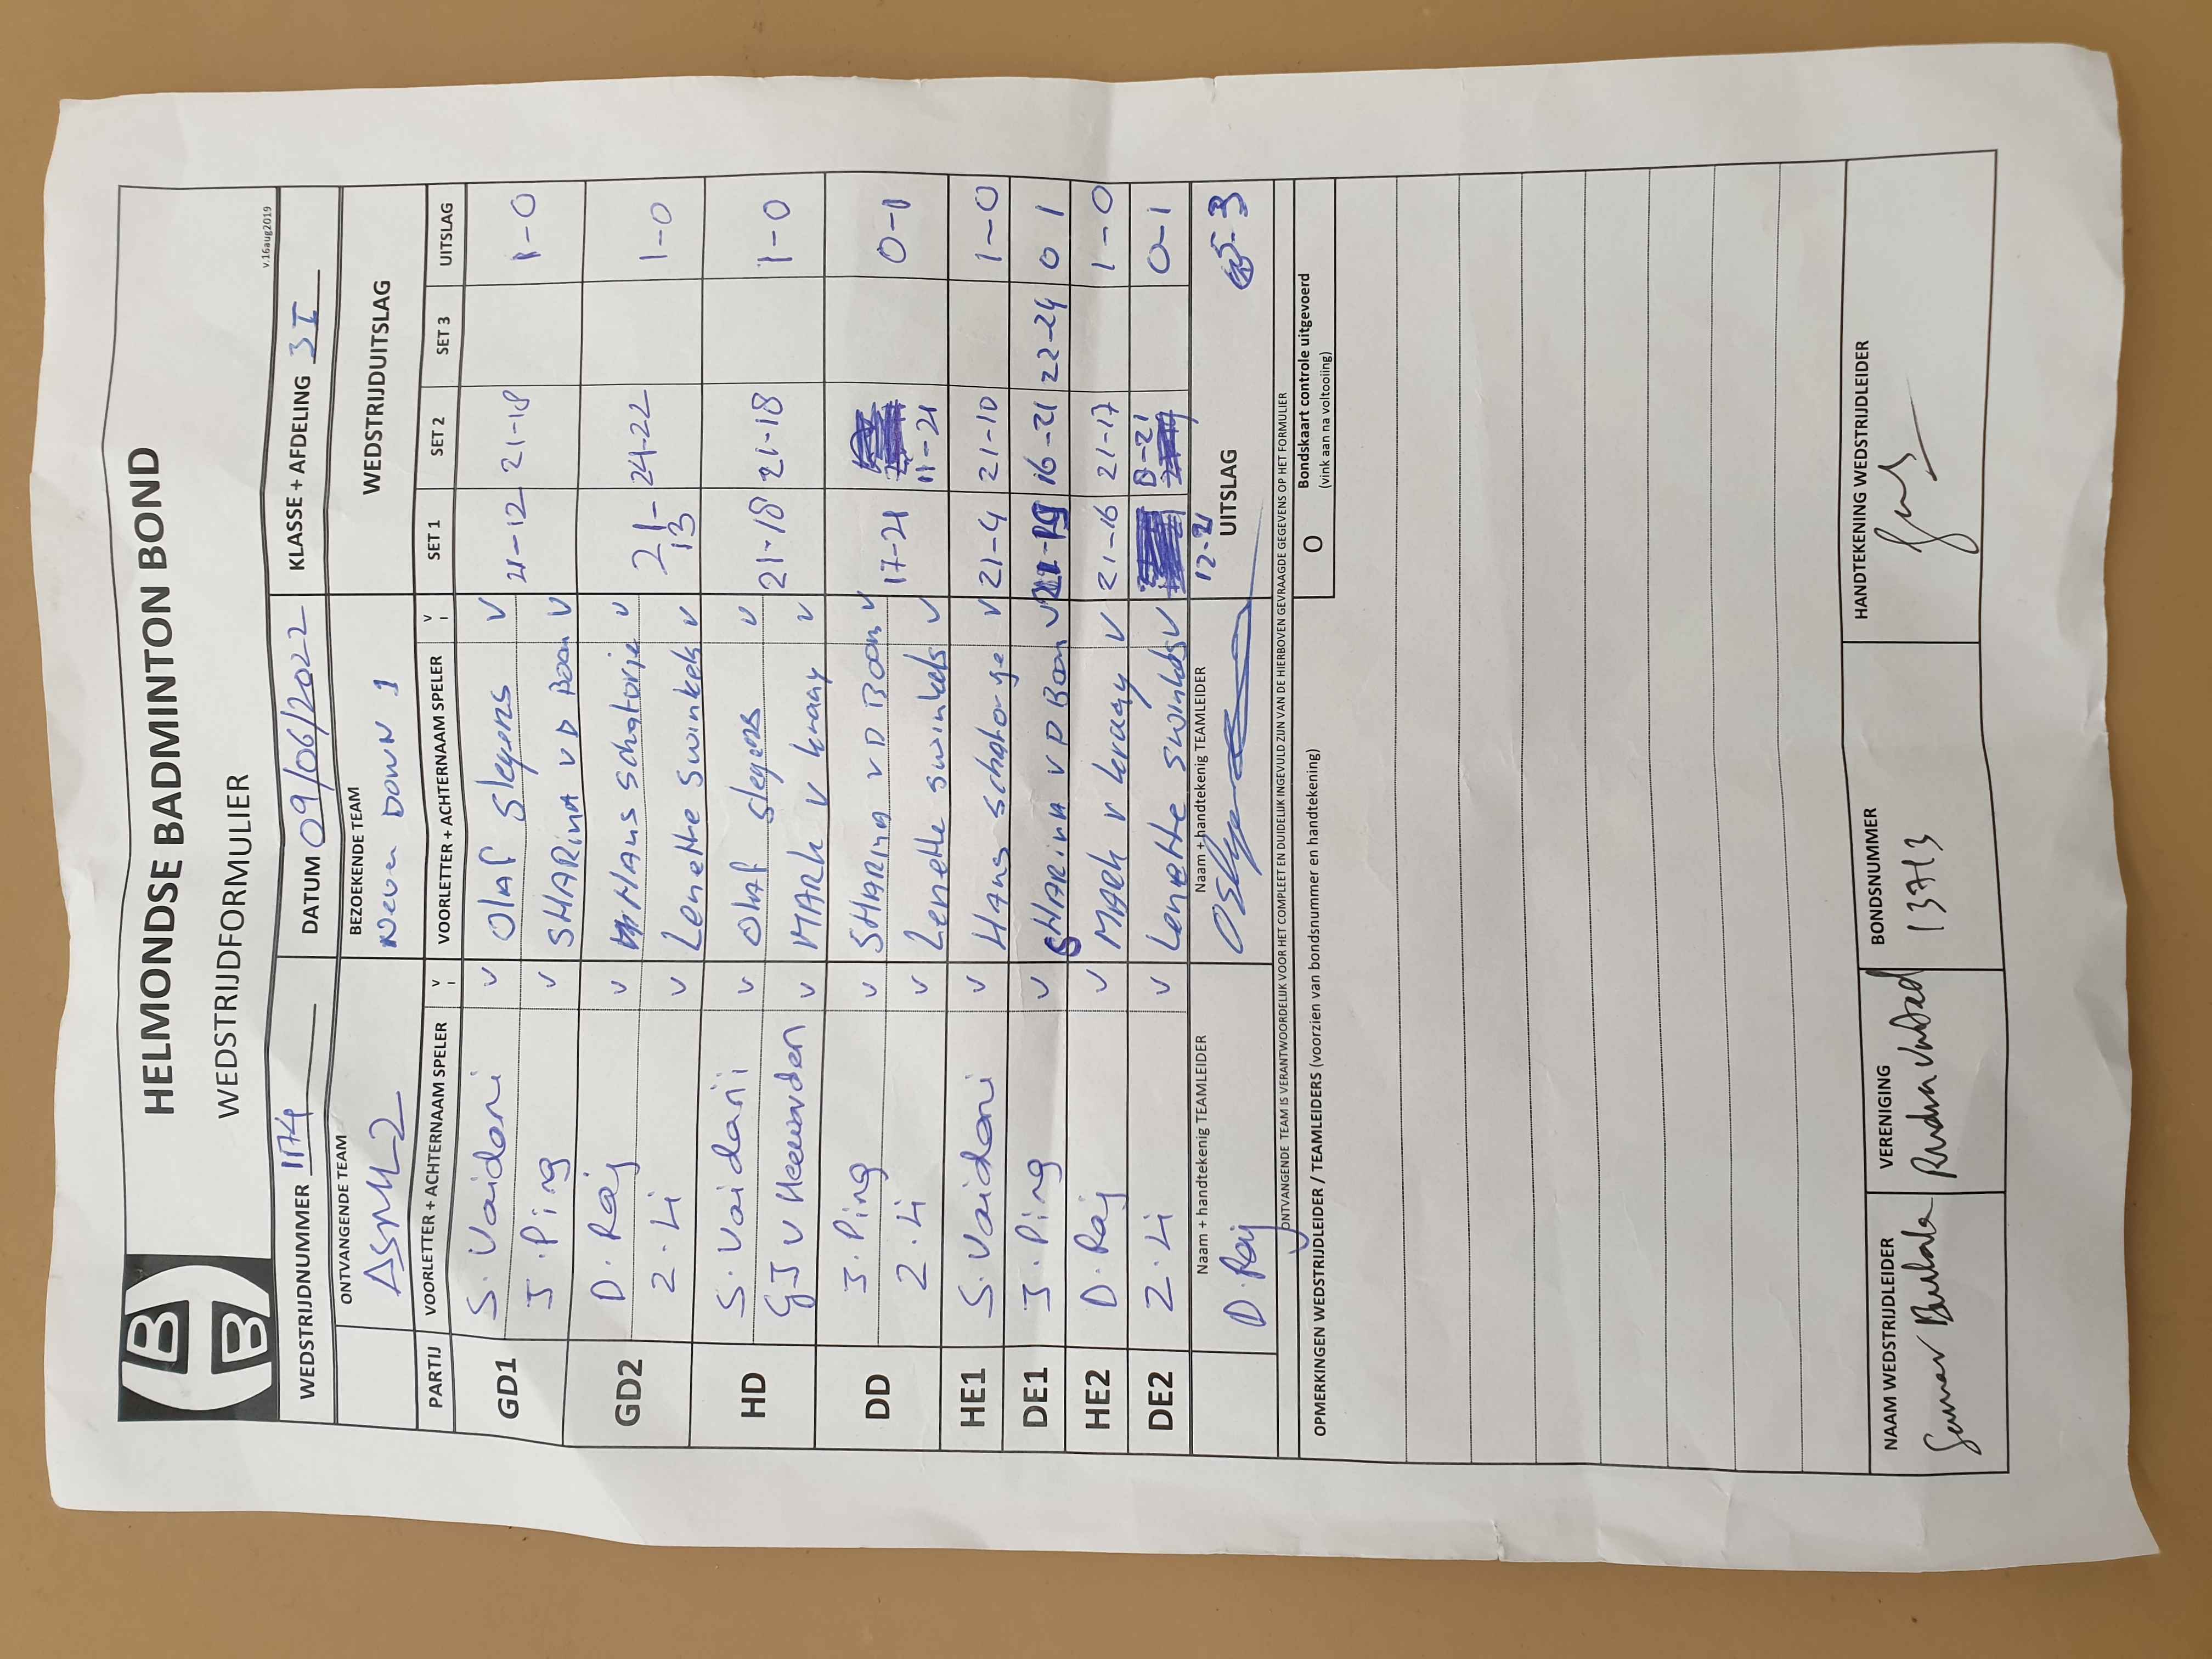 HELMONDSE BADMINTON BOND
WEDSTRIJDFORMULIER
v.16aug2019
WEDSTRIJDNUMMER 1174 DATUM 09/06/2022 KLASSE + AFDELING 3I
ONTVANGENDE TEAM BEZOEKENDE TEAM WEDSTRIJDUITSLAG
ASML 2 Never Down 1
PARTIJ VOORLETTER + ACHTERNAAM SPELER V I VOORLETTER + ACHTERNAAM SPELER V I SET 1 SET 2 SET 3 UITSLAG
GD1 S. Vaidani v Olaf Slegers v 21-12 21-18 1-0
J. Ping v SHARinA v D Boom v
GD2 D. Raj v Hans schatorje v 21-13 24-22 1-0
Z. Li v Lenette Swinkels v
HD S. Vaidani v Olaf Slegers v 21-18 21-18 1-0
GJ v Heeuvden v MARk v kraay v
DD J. Ping v SHARina v D Boom v 17-21 11-21 0-1
Z. Li v Lenette swinkels v
HE1 S. Vaidani v Hans schatorje v 21-4 21-10 1-0
DE1 J. Ping v SHARinA v D Boom v 21-19 16-21 22-24 0 1
HE2 D. Raj v MARk v kraay v 21-16 21-17 1-0
DE2 Z. Li v Lenette swinkels v 12-21 0-1
Naam + handtekenig TEAMLEIDER Naam + handtekenig TEAMLEIDER UITSLAG 5-3
D. Raj
ONTVANGENDE TEAM IS VERANTWOORDELIJK VOOR HET COMPLEET EN DUIDELIJK INGEVULD ZIJN VAN DE HIERBOVEN GEVRAAGDE GEGEVENS OP HET FORMULIER
OPMERKINGEN WEDSTRIJDLEIDER / TEAMLEIDERS (voorzien van bondsnummer en handtekening) O Bondskaart controle uitgevoerd
(vink aan na voltooiing)
NAAM WEDSTRIJDLEIDER VERENIGING BONDSNUMMER HANDTEKENING WEDSTRIJDLEIDER
13713